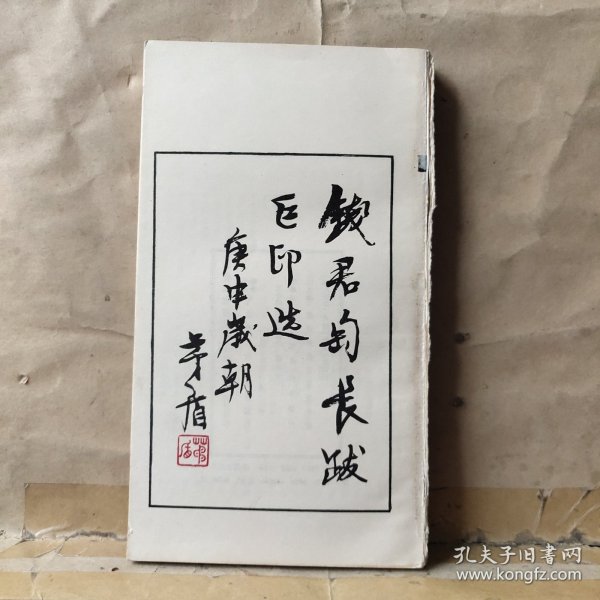 錢君匋長跋
巨印选
庚申歲朝
茅盾
孔夫子旧書网
www.kongfz.com